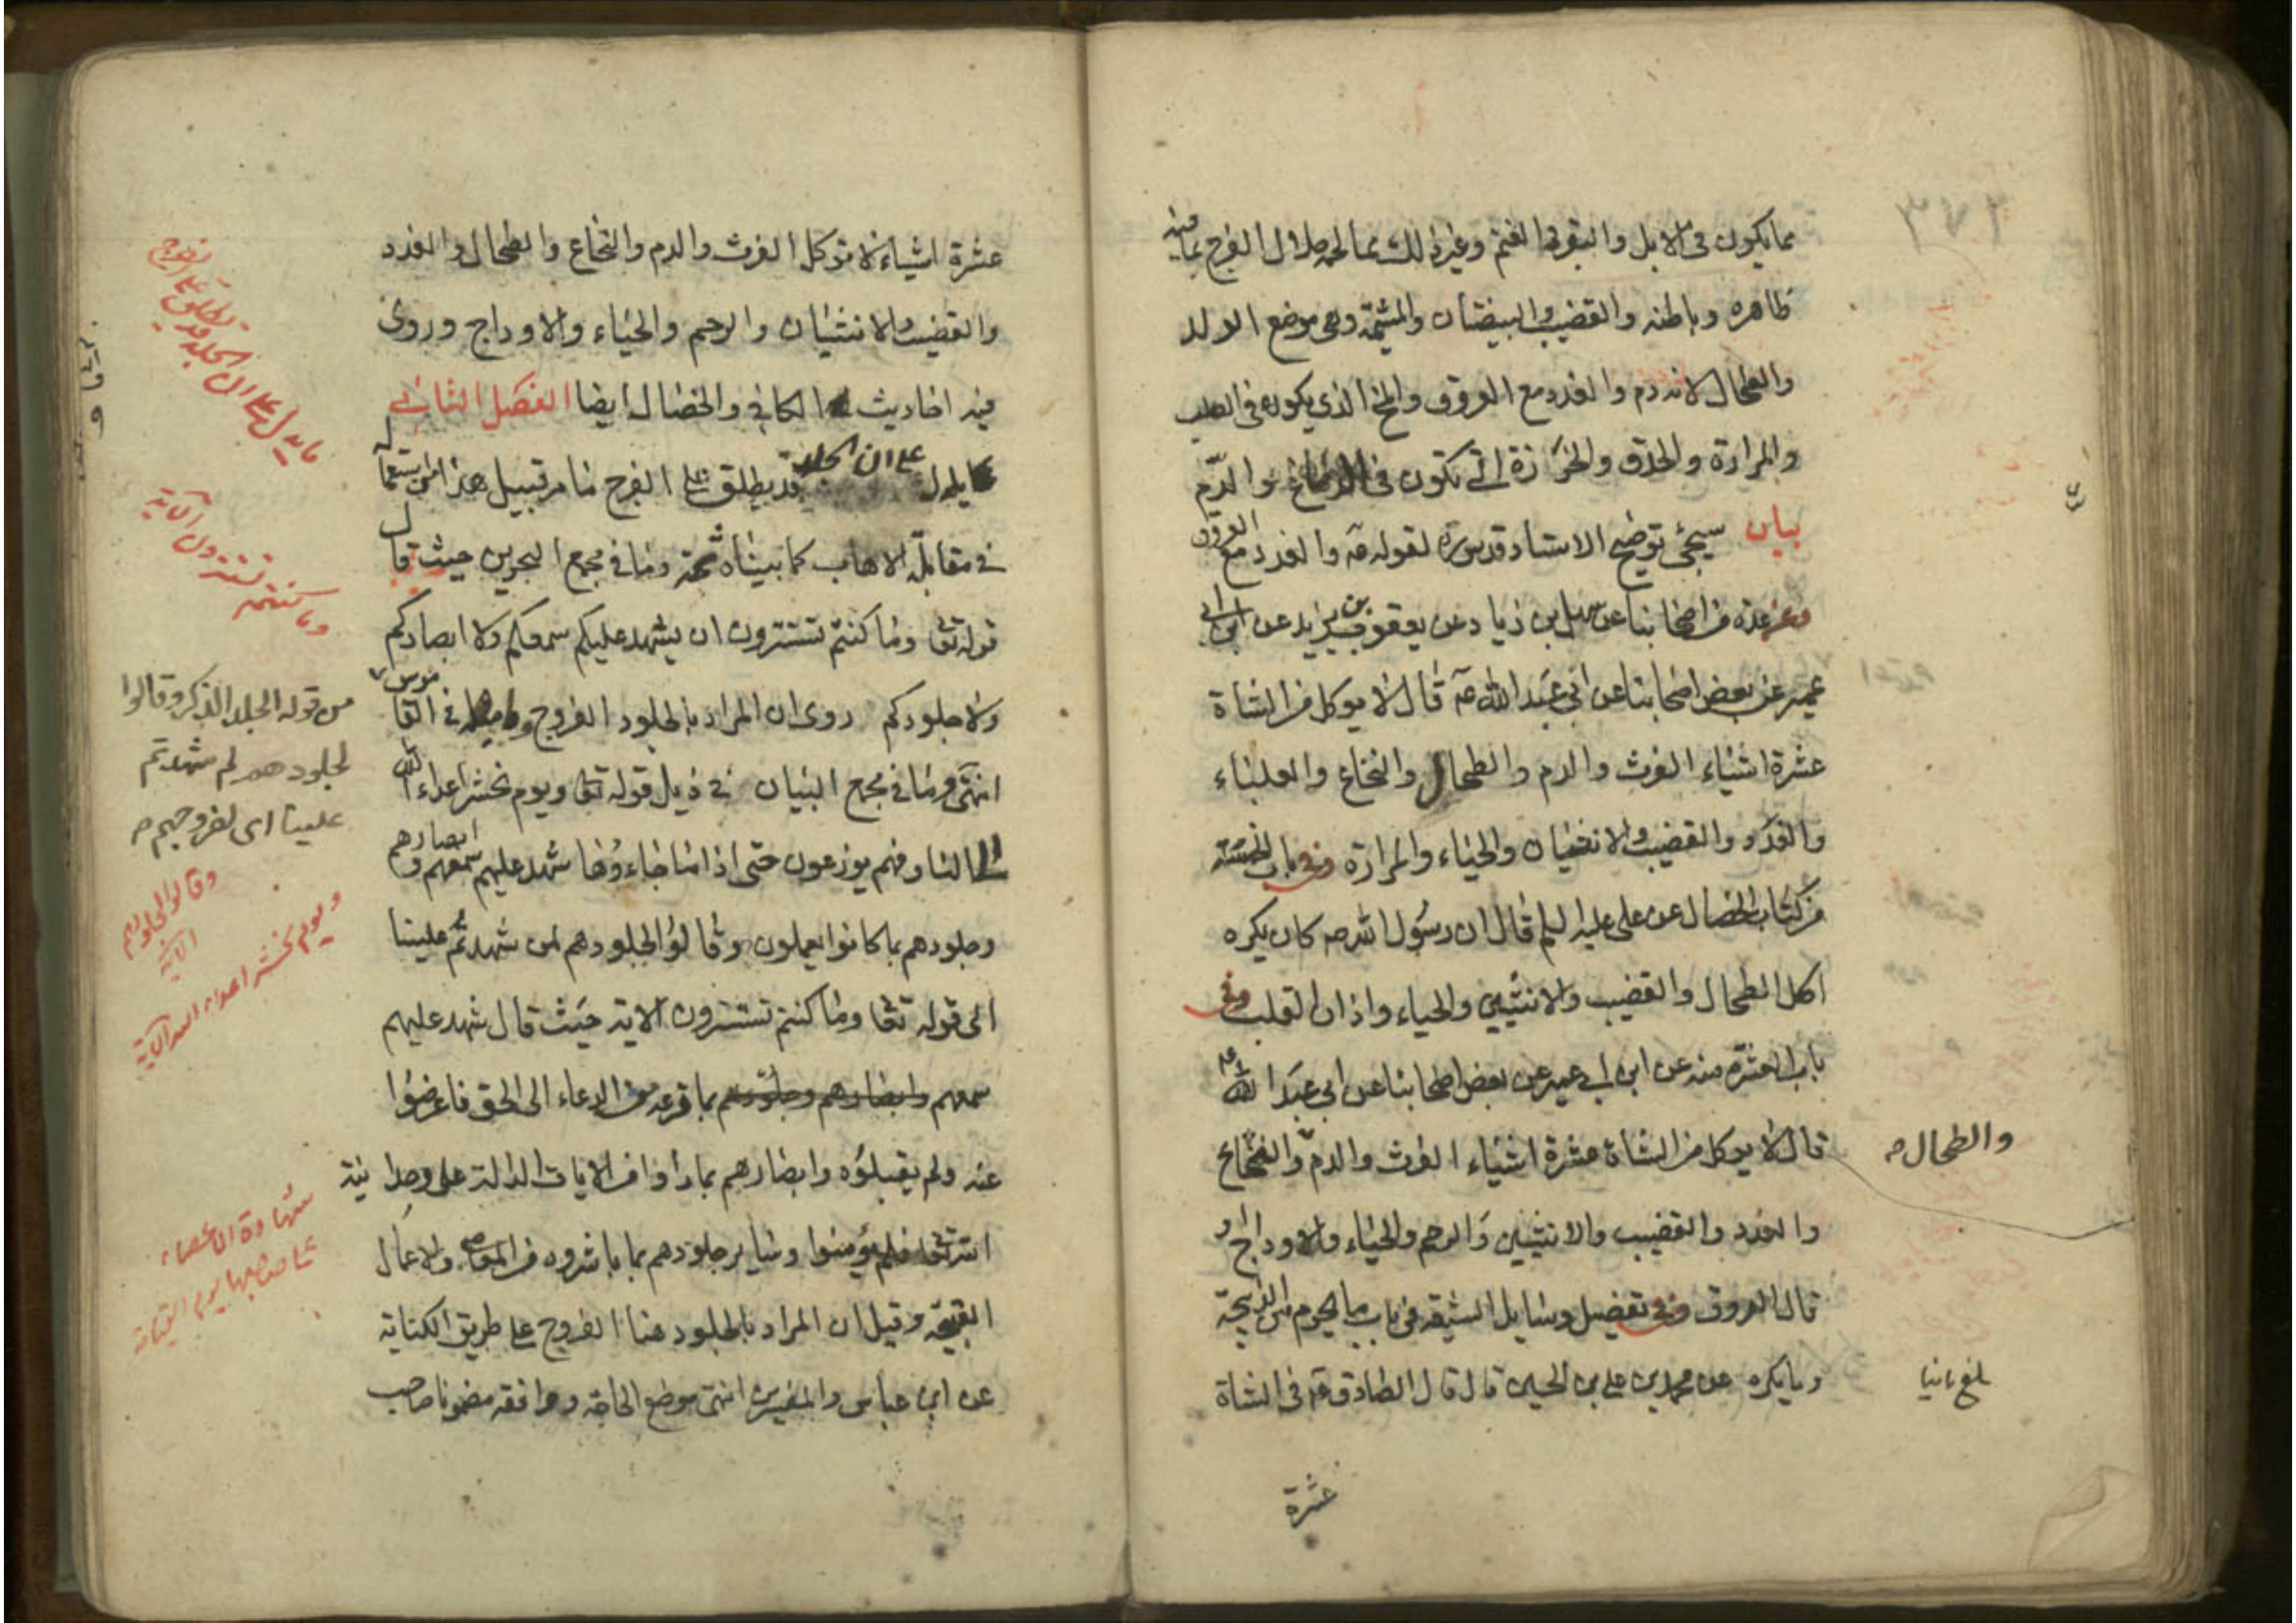 مما يكون فى الابل والبقر والغنم وغير ذلك مما لحمه حلال الفرج بما فيه
ظاهره وباطنه والقضيب والبيضتان والمشيمة وهى موضع الولد
والطحال لانه دم والغدد مع العروق والمخ الذي يكون فى الصلب
والمرارة والحدق والخرزة التي تكون في الدماغ والدم
بيان سيجئ توضيح الاستاد قدس سره لقوله عه والغدد مع العروق
وعن عدة من اصحابنا عن سهل بن زياد عن يعقوب بن يزيد عن ابن ابي
عمير عن بعض اصحابنا عن ابي عبد الله عه قال لا يوكل من الشاة
عشرة اشياء الفرث والدم والطحال والنخاع والعلباء
والغدد والقضيب والانثيان والحياء والمرارة وفي باب الخمسة
من كتاب الخصال عن علي عليه السلم قال ان رسول الله صه كان يكره
اكل الطحال والقضيب والانثيين والحياء واذان القلب وفي
باب العشرة منه عن ابن ابي عمير عن بعض اصحابنا عن ابي عبد الله عه
قال لا يوكل من الشاة عشرة اشياء الفرث والدم والنخاع
والطحال صح
والغدد والقضيب والانثيين والرحم والحياء والاوداج او
قال العروق وفي تفصيل وسايل الشيعه في باب ما يحرم من الذبيحة
وما يكره عن محمد بن علي بن الحسين قال قال الصادق عه في الشاة
بلغ ثانيا
عشرة
عشرة اشياء لا توكل الفرث والدم والنخاع والطحال والغدد
والقضيب والانثيان والرحم والحياء والاوداج وروى
فيه احاديث الكافي والخصال ايضا الفصل الثاني
يدل على ان الجلد قد يطلق على الفرج ما من قبيل هذا من استعمال
في مقابلة الاهاب كما بيناه ثمة وما في مجمع البحرين حيث قال
قوله تعا وما كنتم تستترون ان يشهد عليكم سمعكم ولا ابصاركم
ولا جلودكم روى ان المراد بالجلود الفروج في القاموس
انتهى وما في مجمع البيان في ذيل قوله تعا ويوم نحشر اعداء الله
الى النار فهم يوزعون حتى اذا ما جاءوها شهد عليهم سمعهم وابصارهم
وجلودهم بما كانوا يعملون وقالوا لجلودهم لم شهدتم علينا
الى قوله تعا وما كنتم تستترون الاية حيث قال شهد عليهم
سمعهم وابصارهم وجلودهم بما قرعه من الدعاء الى الحق فاعرضوا
عنه ولم يقبلوه وابصارهم بما راوا من الايات الدالة على وحدانية
الله تعا فلم يؤمنوا وساير جلودهم بما باشروه من المعاصي والاعمال
القبيحة وقيل ان المراد بالجلود هنا الفروج على طريق الكناية
عن ابن عباس والمفسرين انتهى موضع الحاجة ووافقه مضمونا صاحب
ما يدل على ان الجلد قد يطلق على الفرج
وما كنتم تستترون الآية
من قوله الجلد الذكر وقالوا
لجلودهم لم شهدتم
علينا اى لفروجهم صح
وقالوا لجلودهم
الاية
ويوم نحشر اعداء الله الآية
شهادة الاعضاء
على صاحبها يوم القيامة